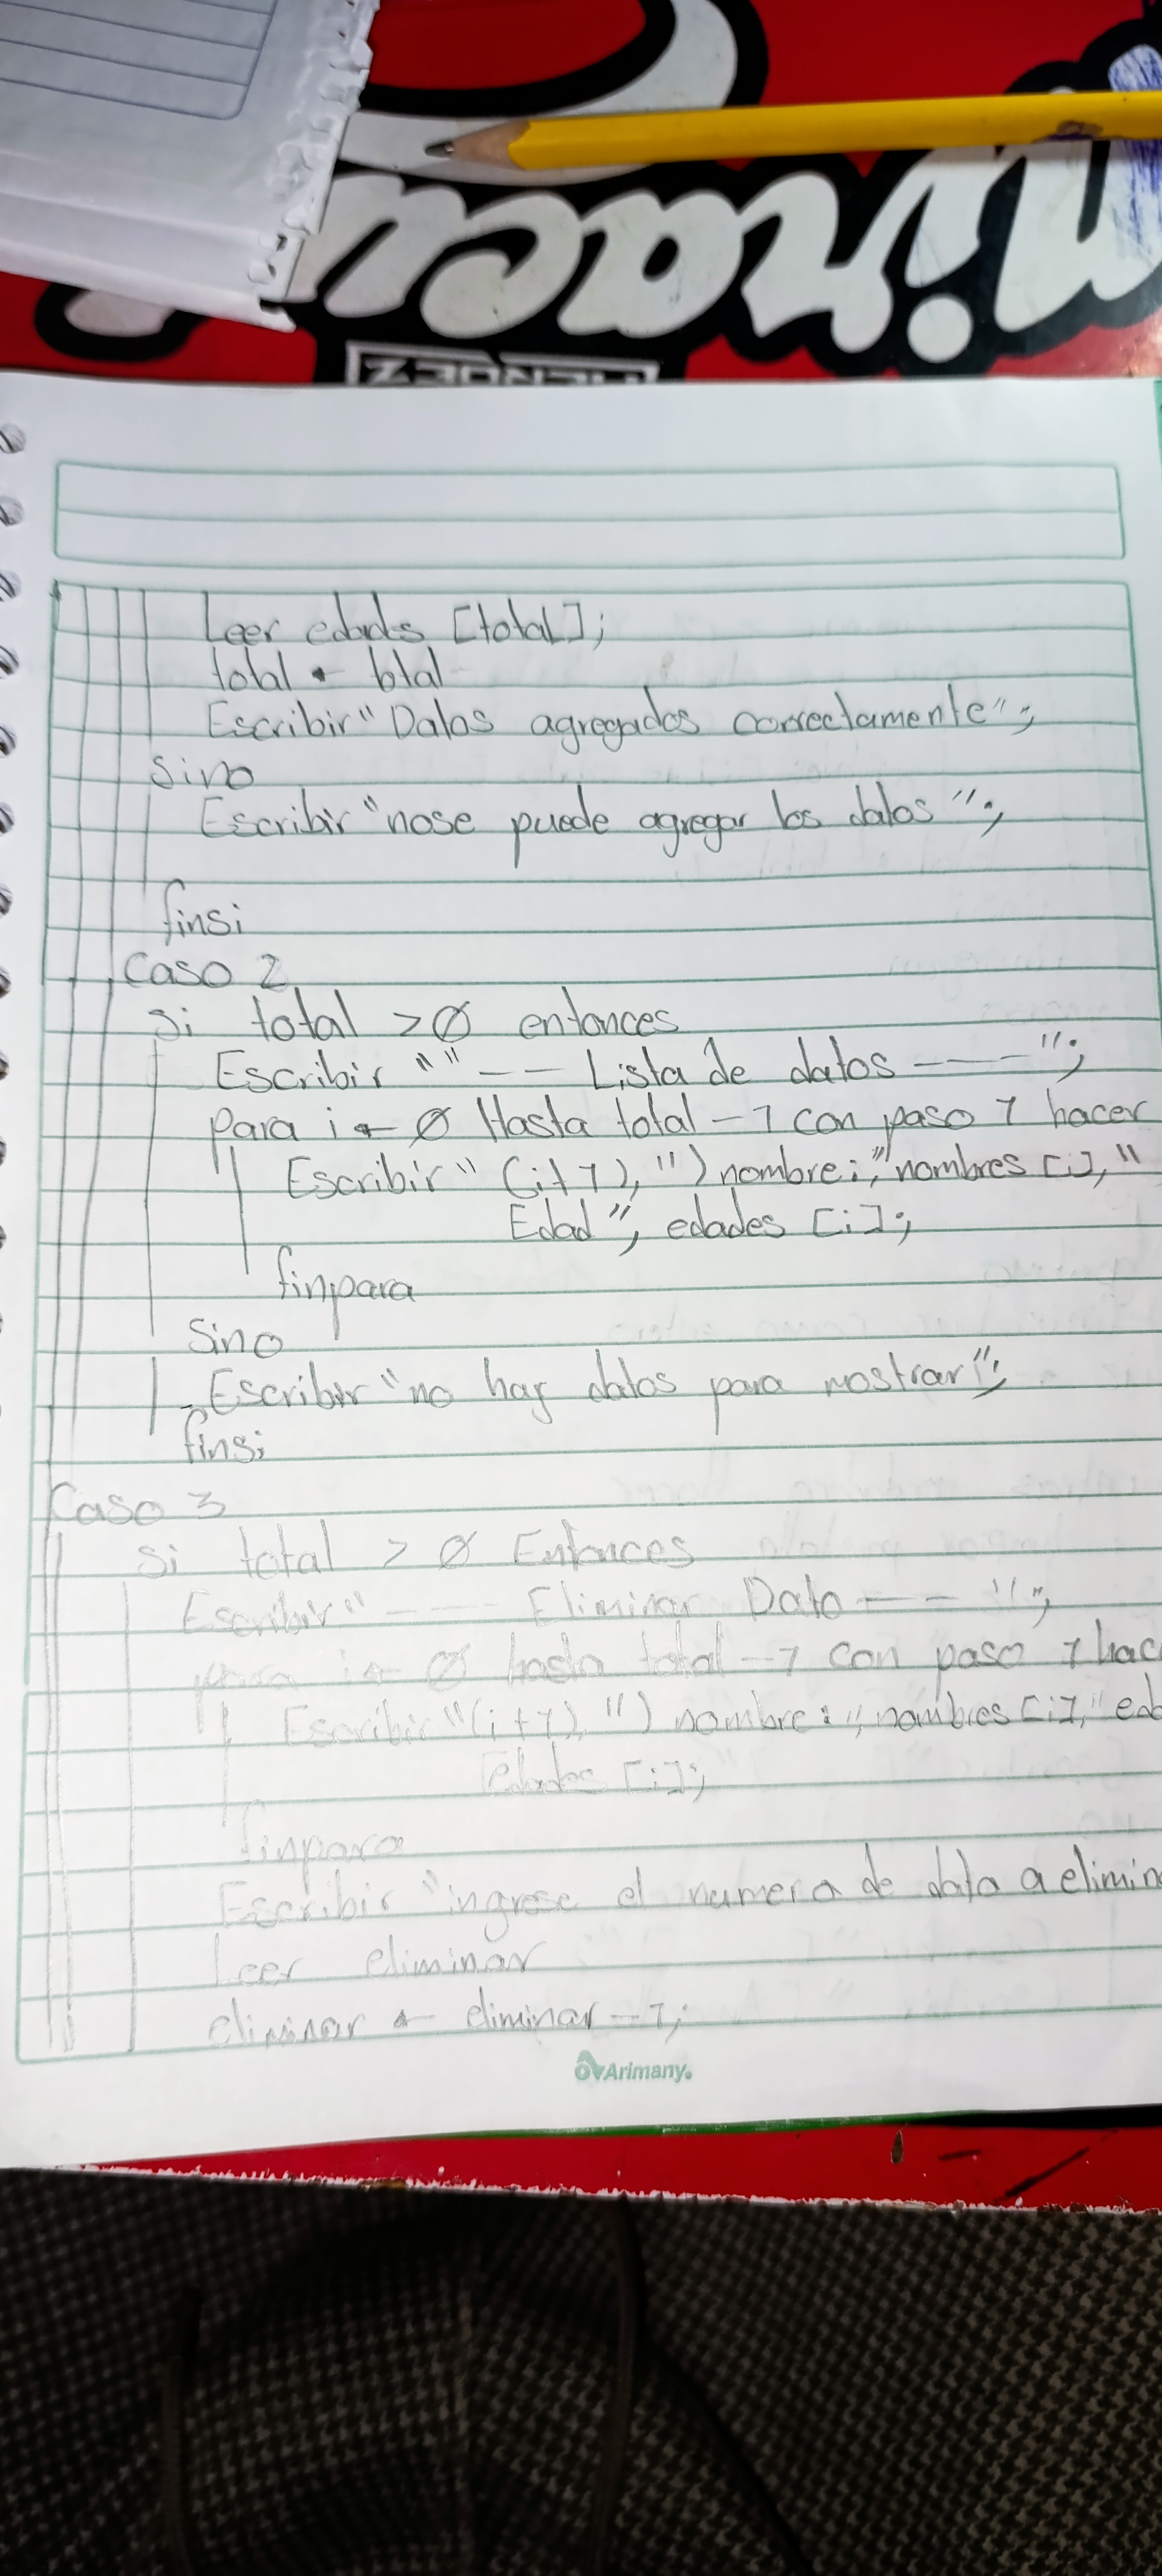 HERDEZ
Leer edades [total];
total ← total
Escribir "Datos agregados correctamente";
Sino
Escribir "nose puede agregar los datos";
finsi
Caso 2
Si total >0 entonces
Escribir "" -- Lista de datos ----";
para i ← 0 Hasta total -1 con paso 1 hacer
Escribir" (i+1), ") nombre:," nombres [i], "
Edad", edades [i];
finpara
Sino
Escribir "no hay datos para mostrar";
finsi
Caso 3
Si total > 0 Entonces
Escribir" ---- Eliminar Dato -- ";
para i ← 0 hasta total -1 con paso 1 hac
Escribir "(i+1), ") nombre:", nombres [i], " ed
edades [i];
finpara
Escribir "ingrese el numero de dato a elimin
Leer eliminar
eliminar ← eliminar -1;
Arimany.